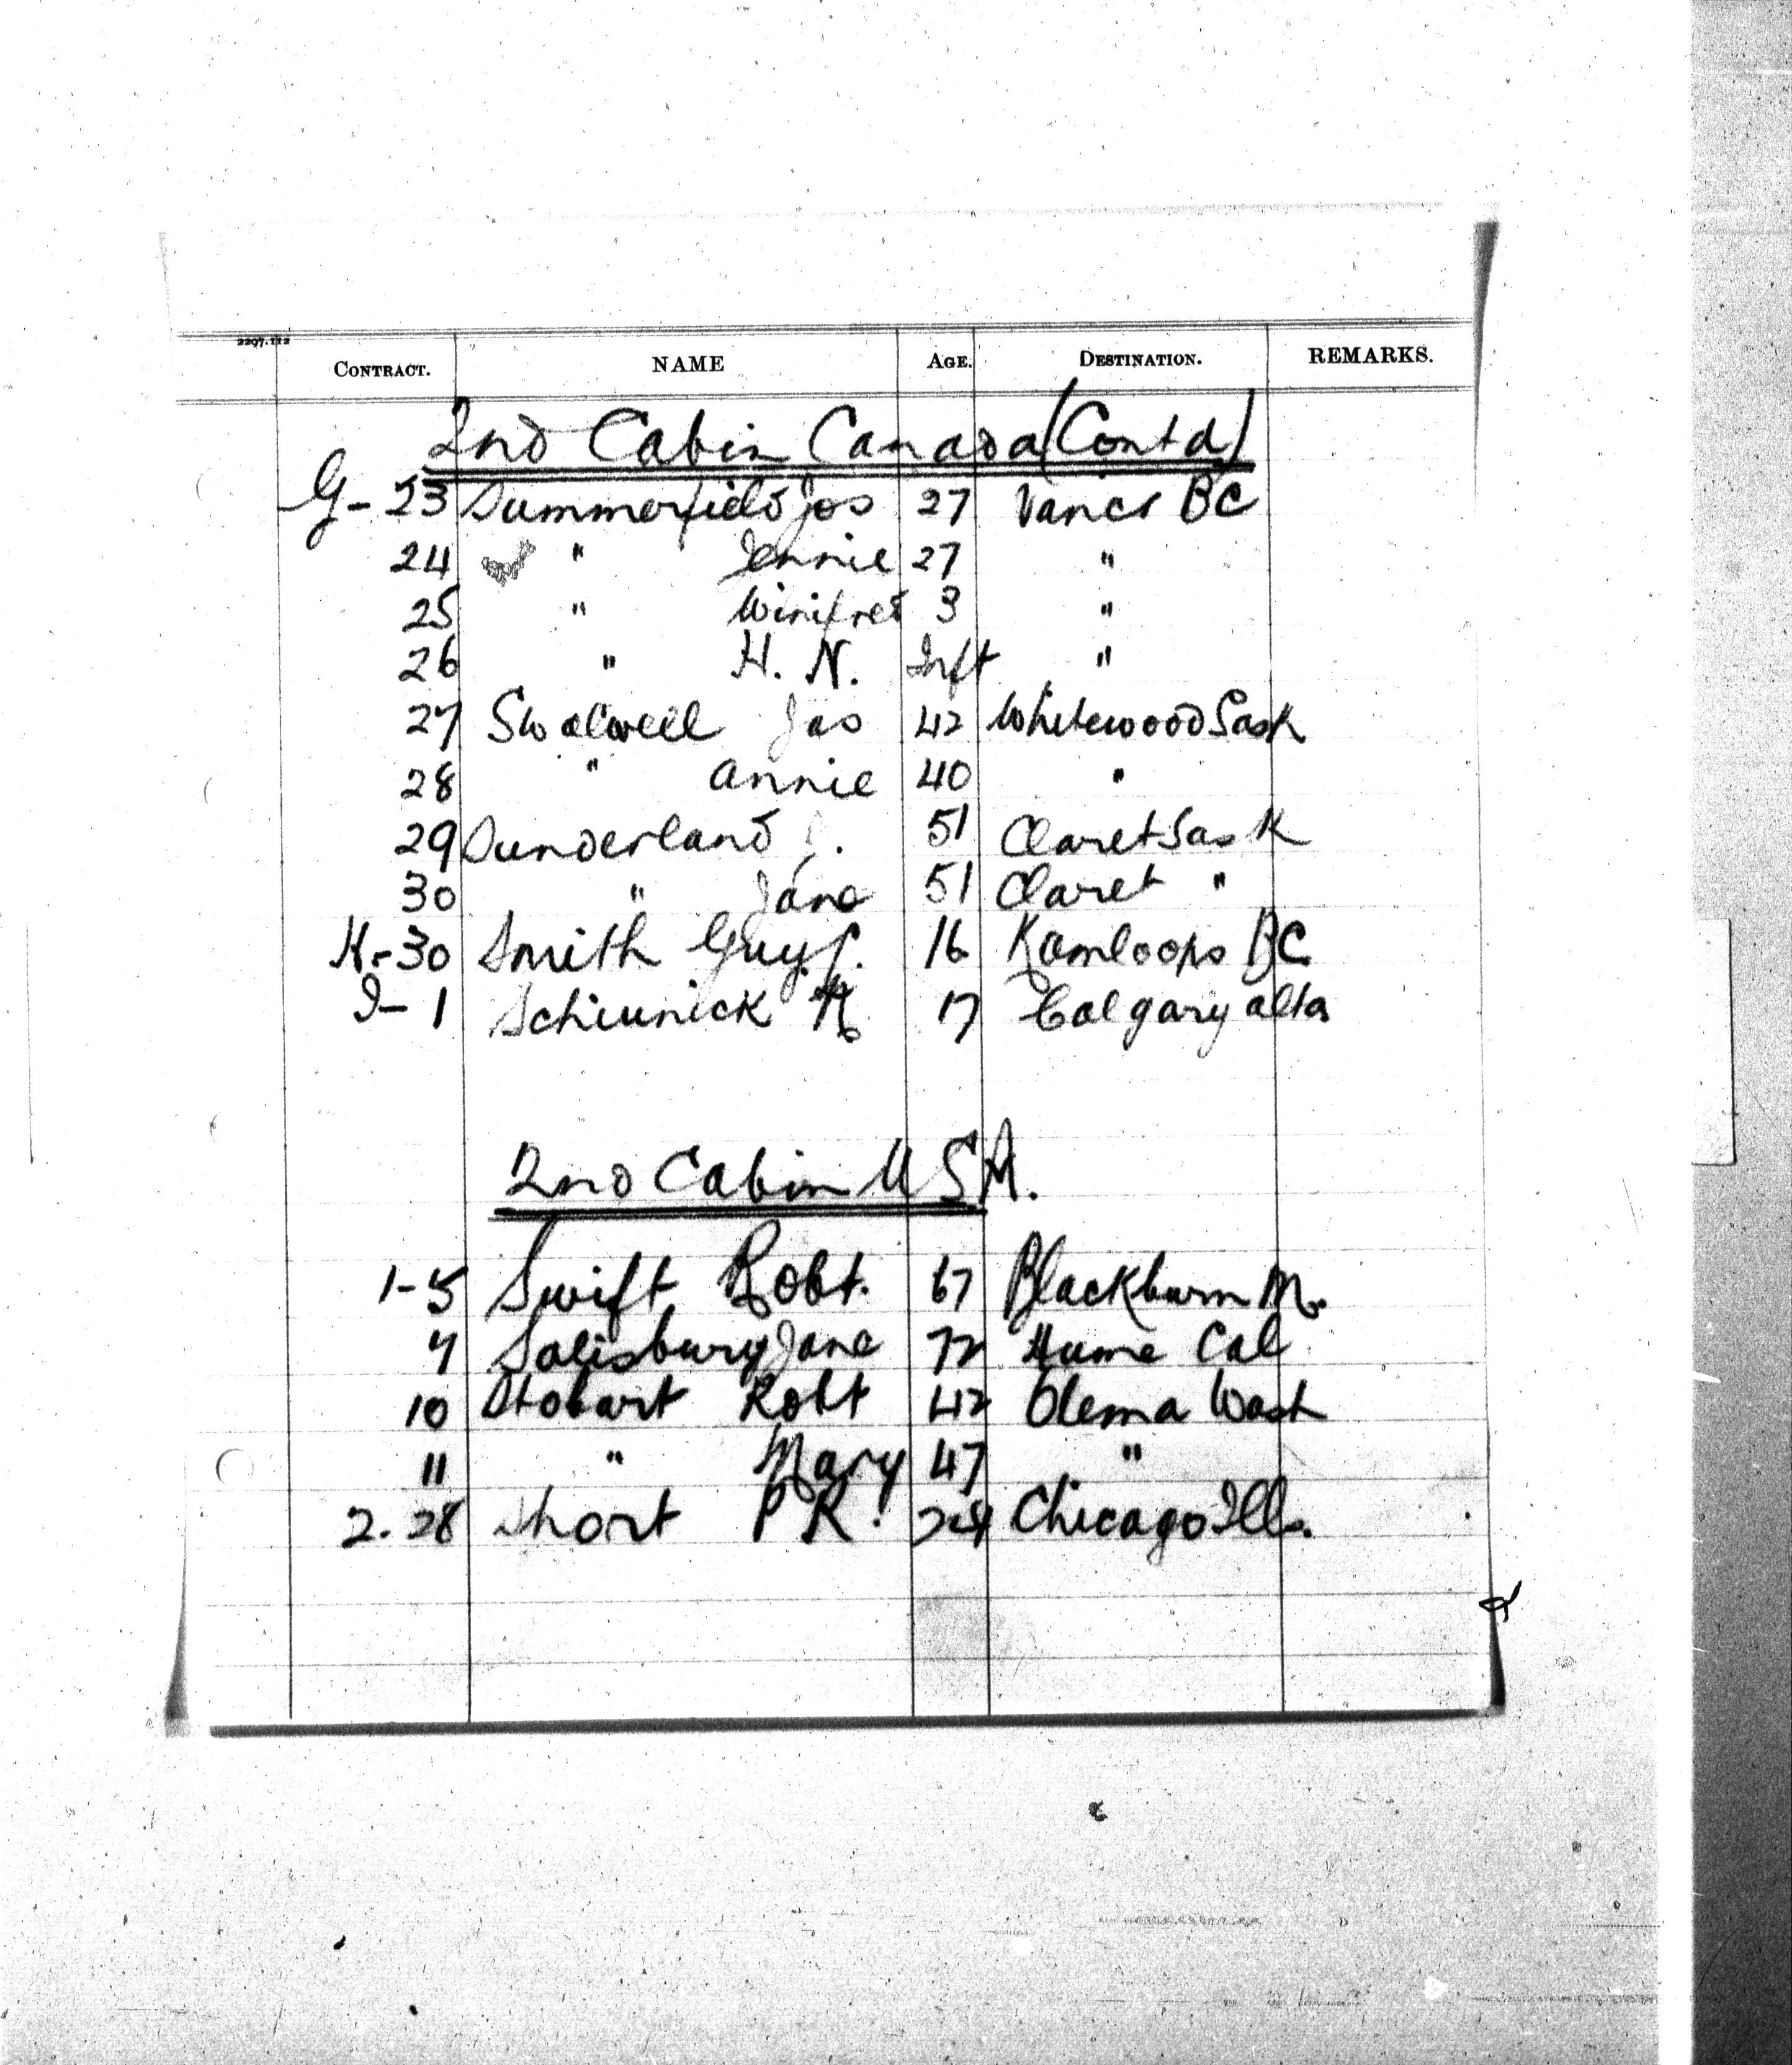 2297.112
CONTRACT. NAME AGE. DESTINATION. REMARKS.
2nd Cabin Canada (Contd)
G-23 Summerfield Jos 27 Vancr BC
24 " Jennie 27 "
25 " Winifred 3 "
26 " H. N. Inft "
27 Swalwell Jas 42 Whitewood Sask
28 " Annie 40 "
29 Sunderland J. 51 Claret Sask
30 " Jane 51 Claret "
H-30 Smith Guy 16 Kamloops BC
I-1 Schiunick 17 Calgary Alta
2nd Cabin USA.
1-5 Swift Robt. 67 Blackburn M.
7 Salisbury Jane 72 Hume Cal
10 Stobart Robt 42 Olema Wash
11 " Mary 47 "
2-28 Short P R. Chicago Ills.